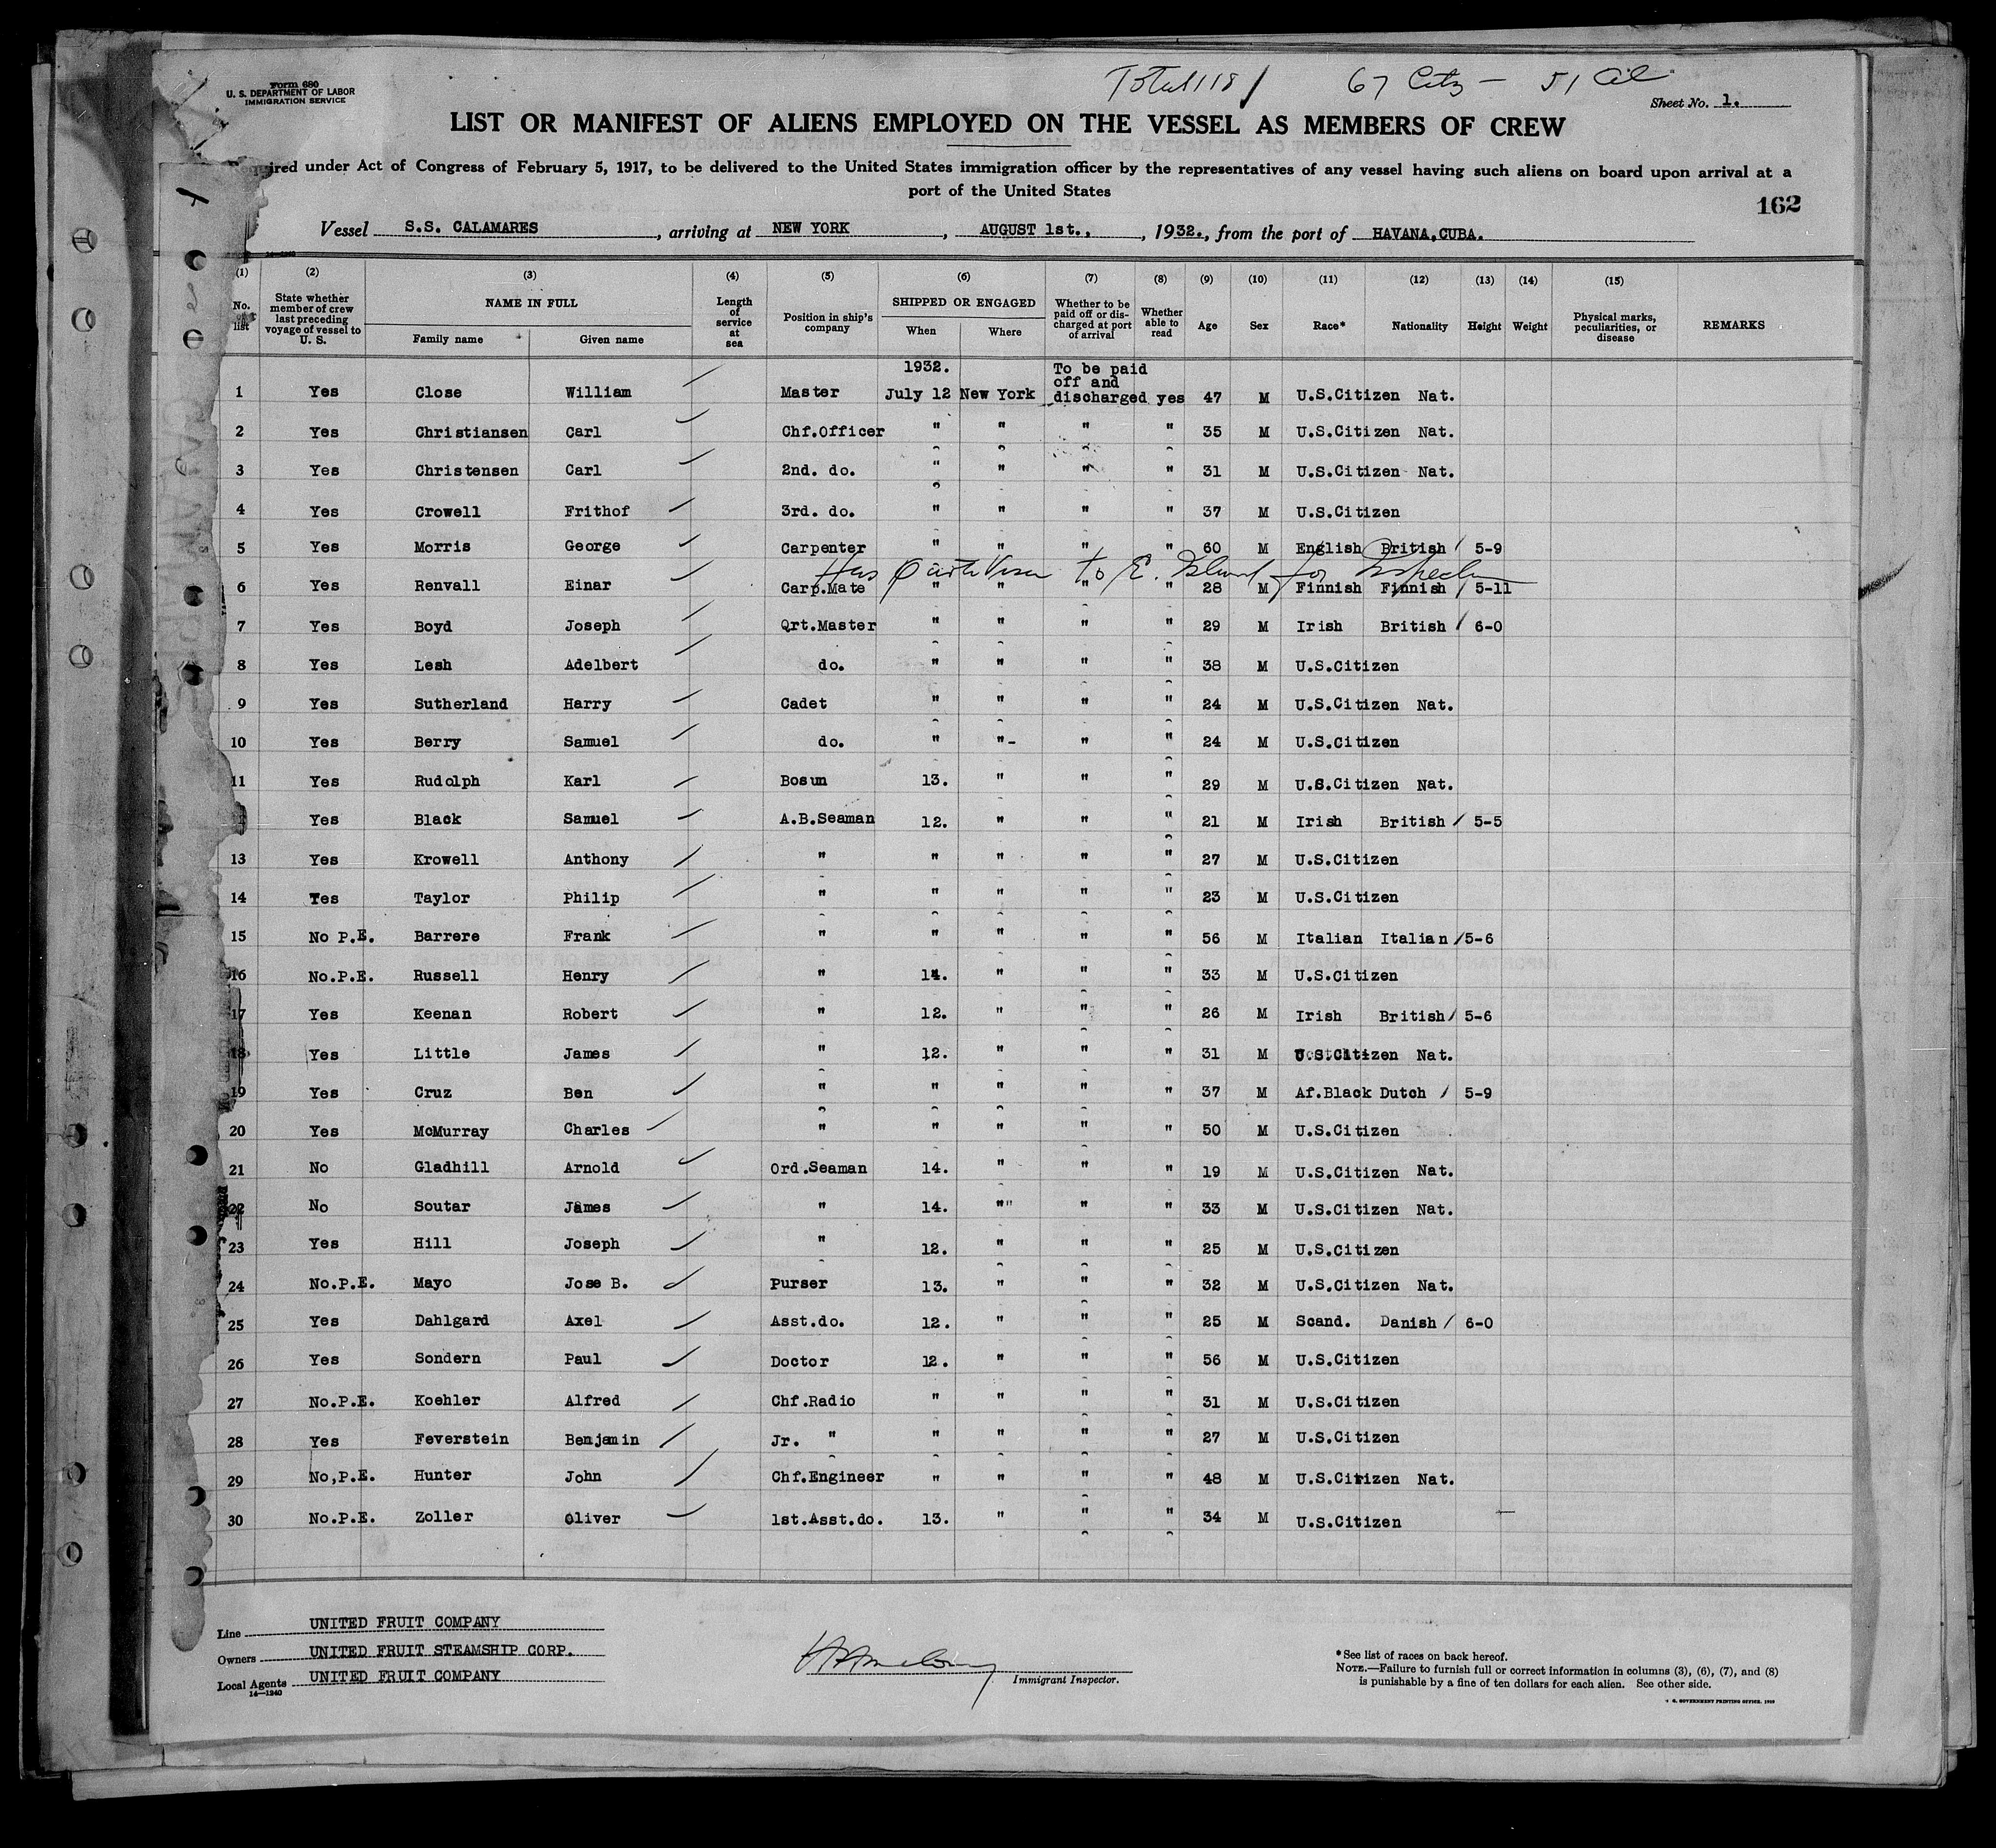 Form 680
U. S. DEPARTMENT OF LABOR
IMMIGRATION SERVICE
Total 118 / 67 Citz — 51 Al
Sheet No. 1.
LIST OR MANIFEST OF ALIENS EMPLOYED ON THE VESSEL AS MEMBERS OF CREW
under Act of Congress of February 5, 1917, to be delivered to the United States immigration officer by the representatives of any vessel having such aliens on board upon arrival at a
port of the United States
162
Vessel S.S. CALAMARES, arriving at NEW YORK, AUGUST 1st., , 1932., from the port of HAVANA,CUBA.
14-1240
(1) (2) (3) (4) (5) (6) (7) (8) (9) (10) (11) (12) (13) (14) (15)
No. list
State whether member of crew last preceding voyage of vessel to U. S.
NAME IN FULL
Family name Given name
Length of service at sea
Position in ship's company
SHIPPED OR ENGAGED
When Where
Whether to be paid off or discharged at port of arrival
Whether able to read
Age Sex Race* Nationality Height Weight
Physical marks, peculiarities, or disease
REMARKS
1932. To be paid
off and
1 Yes Close William Master July 12 New York discharged yes 47 M U.S.Citizen Nat.
2 Yes Christiansen Carl Chf.Officer " " " " 35 M U.S.Citizen Nat.
3 Yes Christensen Carl 2nd. do. " " " " 31 M U.S.Citizen Nat.
4 Yes Crowell Frithof 3rd. do. " " " " 37 M U.S.Citizen
5 Yes Morris George Carpenter " " " " 60 M English British / 5-9
Has to E. Island for
6 Yes Renvall Einar Carp.Mate " " " " 28 M Finnish Finnish / 5-11
7 Yes Boyd Joseph Qrt.Master " " " " 29 M Irish British / 6-0
8 Yes Lesh Adelbert do. " " " " 38 M U.S.Citizen
9 Yes Sutherland Harry Cadet " " " " 24 M U.S.Citizen Nat.
10 Yes Berry Samuel do. " "- " " 24 M U.S.Citizen
11 Yes Rudolph Karl Bosun 13. " " " 29 M U.S.Citizen Nat.
Yes Black Samuel A.B.Seaman 12. " " " 21 M Irish British / 5-5
13 Yes Krowell Anthony " " " " " 27 M U.S.Citizen
14 Yes Taylor Philip " " " " " 23 M U.S.Citizen
15 No P.E. Barrere Frank " " " " " 56 M Italian Italian / 5-6
16 No.P.E. Russell Henry " 14. " " " 33 M U.S.Citizen
17 Yes Keenan Robert " 12. " " " 26 M Irish British / 5-6
18 Yes Little James " 12. " " " 31 M U.S.Citizen Nat.
19 Yes Cruz Ben " " " " " 37 M Af.Black Dutch / 5-9
20 Yes McMurray Charles " " " " " 50 M U.S.Citizen
21 No Gladhill Arnold Ord.Seaman 14. " " " 19 M U.S.Citizen Nat.
22 No Soutar James " 14. "" " " 33 M U.S.Citizen Nat.
23 Yes Hill Joseph " 12. " " " 25 M U.S.Citizen
24 No.P.E. Mayo Jose B. Purser 13. " " " 32 M U.S.Citizen Nat.
25 Yes Dahlgard Axel Asst.do. 12. " " " 25 M Scand. Danish / 6-0
26 Yes Sondern Paul Doctor 12. " " " 56 M U.S.Citizen
27 No.P.E. Koehler Alfred Chf.Radio " " " " 31 M U.S.Citizen
28 Yes Feverstein Benjamin Jr. " " " " " 27 M U.S.Citizen
29 No,P.E. Hunter John Chf.Engineer " " " " 48 M U.S.Citizen Nat.
30 No.P.E. Zoller Oliver 1st.Asst.do. 13. " " " 34 M U.S.Citizen
Line UNITED FRUIT COMPANY
Owners UNITED FRUIT STEAMSHIP CORP.
Local Agents UNITED FRUIT COMPANY
14—1240
Immigrant Inspector.
*See list of races on back hereof.
NOTE.—Failure to furnish full or correct information in columns (3), (6), (7), and (8)
is punishable by a fine of ten dollars for each alien. See other side.
GOVERNMENT PRINTING OFFICE